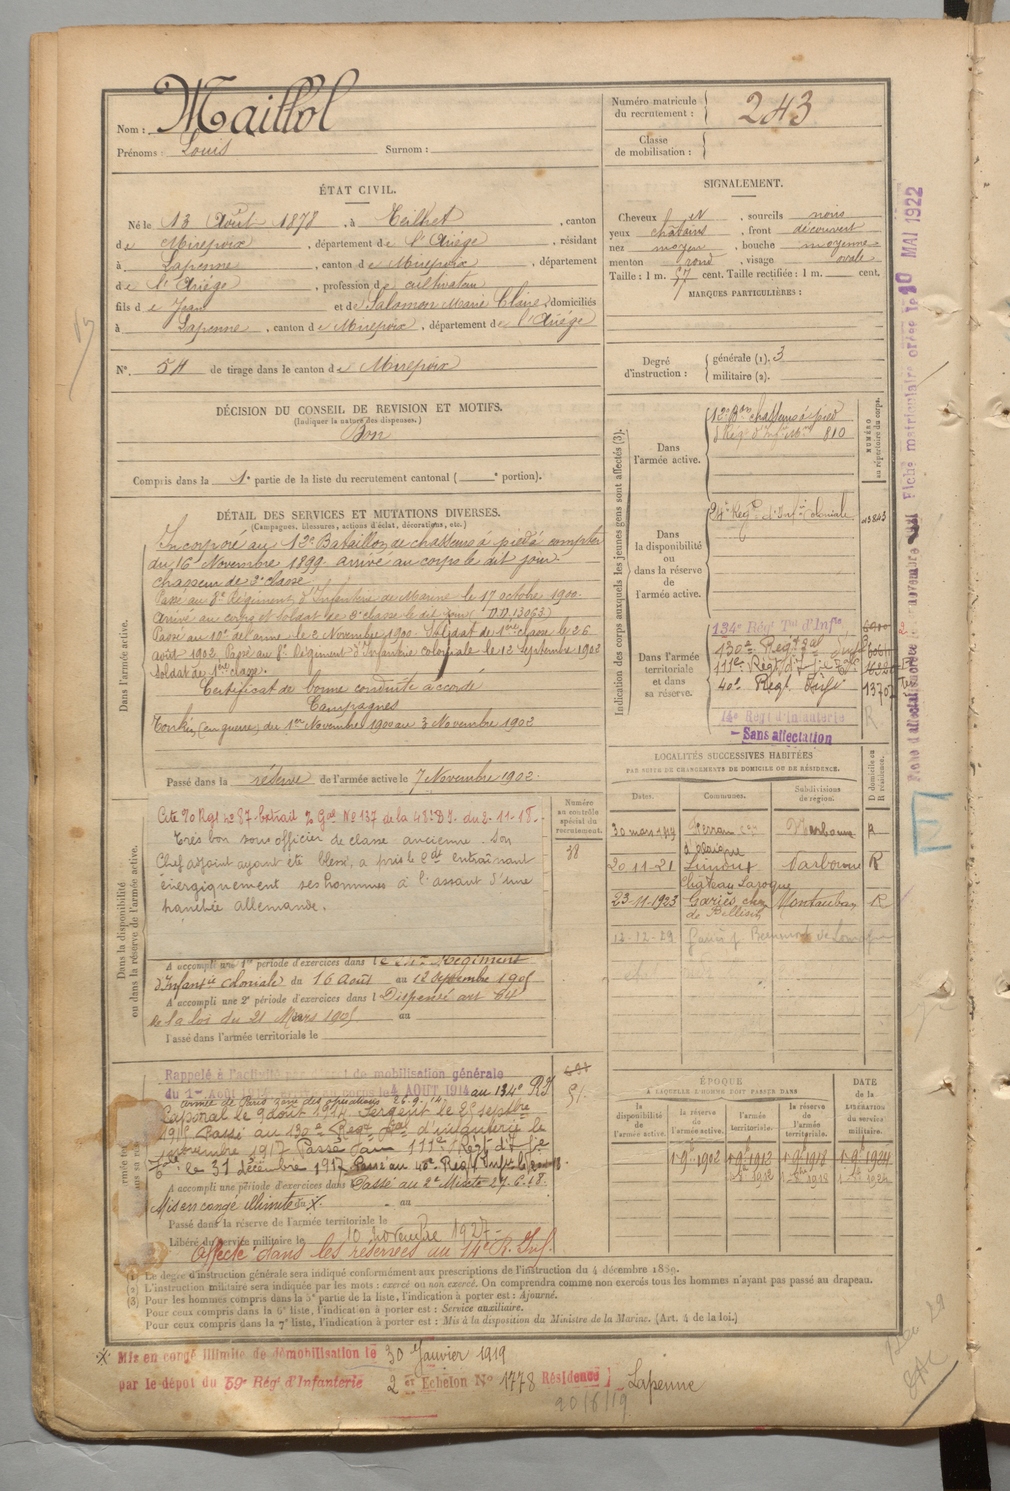 Nom : Maillol
Prénoms : Louis Surnom :
Numéro matricule du recrutement : 243
Classe de mobilisation :
ÉTAT CIVIL.
Né le 13 Août 1878, à Teilhet, canton
de Mirepoix, département de l'Ariège, résidant
à Lapenne, canton de Mirepoix, département
de l'Ariège, profession de cultivateur
fils de Jean et de Salomon Marie Claire, domiciliés
à Lapenne, canton de Mirepoix, département de l'Ariège
N°. 54 de tirage dans le canton de Mirepoix
SIGNALEMENT.
Cheveux et, sourcils noirs
yeux châtains, front découvert
nez moyen, bouche moyenne
menton rond, visage ovale
Taille : 1 m. 57 cent. Taille rectifiée : 1 m. cent.
MARQUES PARTICULIÈRES :
Degré d'instruction : générale (1). 3
militaire (2).
DÉCISION DU CONSEIL DE REVISION ET MOTIFS.
(Indiquer la nature des dispenses.)
Bon
Compris dans la 1e partie de la liste du recrutement cantonal ( e portion).
DÉTAIL DES SERVICES ET MUTATIONS DIVERSES.
(Campagnes, blessures, actions d'éclat, décorations, etc.)
Dans l'armée active.
Incorporé au 12e Bataillon de chasseurs à pied à compter
du 16 Novembre 1899. arrivé au corps le dit jour.
chasseur de 2e classe
Passé au 8e Régiment d'Infanterie de Marine le 17 octobre 1900.
Arrivé au corps et soldat de 2e classe le dit jour (D.D. 13063)
Passé au 10e de l'arme le 2 Novembre 1900. Soldat de 1ère classe le 26
août 1902. Passé au 8e Régiment d'Infanterie coloniale le 12 Septembre 1902
soldat de 1ère classe.
Certificat de bonne conduite accordé
Campagnes
Tonkin (en guerre) du 1er Novembre 1900 au 3 Novembre 1902
Passé dans la réserve de l'armée active le 7 Novembre 1902.
Indication des corps auxquels les jeunes gens sont affectés (3).
NUMÉRO au répertoire du corps.
Dans l'armée active.
12e Bon chasseurs à pied
8 Régt d'Infie Mne 810
Dans la disponibilité ou dans la réserve de l'armée active.
24e Regt d'Infie coloniale
Dans l'armée territoriale et dans sa réserve.
134e Régt Tal d'Infie
130e Regt Tal Infie
111e Régt d'Infie
40e Régt Infie 1370
14e Régt d'Infanterie
Sans affectation
LOCALITÉS SUCCESSIVES HABITÉES
PAR SUITE DE CHANGEMENTS DE DOMICILE OU DE RÉSIDENCE.
D domicile ou R résidence.
Dates. Communes. Subdivisions de région.
30 mars 1919 Narbonne R
20-11-21 Limoux Narbonne R
Château Laroque
23-11-1923 Gariès Montauban R
12-12-29
Dans la disponibilité ou dans la réserve de l'armée active.
Numéro au contrôle spécial du recrutement.
38
Cité 20 Rgt No 87. extrait Gal No 137 de la 48e D.I. du 2-11-18.
Très bon sous officier de classe ancienne. Son
Chef adjoint ayant été blessé, a pris le Ct entraînant
énergiquement ses hommes à l'assaut d'une
tranchée allemande.
A accompli une 1re période d'exercices dans l Régiment
d'Infantie coloniale du 16 Août au 12 Septembre 1905
A accompli une 2e période d'exercices dans l Dispensé art
de la loi du 21 Mars 1905 au
Passé dans l'armée territoriale le
Rappelé à l'activité par décret de mobilisation générale
du 1er Août 4 AOUT 1914 au 134e RI
armée de Paris zone des opérations 26.9.14.
Caporal le 9 août 1914. Sergent le 25 septbre
1915 Passé au 130e Régt Tal d'infanterie le
novembre 1917 Passé au 111e Régt d'Infie
le 31 décembre 1917 Passé au 40e Régt Infie
A accompli une période d'exercices dans Passé au 2e Mixte 27.6.18.
Mis en congé illimité du X. au
Passé dans la réserve de l'armée territoriale le
Libéré du service militaire le 10 novembre 1927
Affecté dans les réserves au 14e R. Inf.
ÉPOQUE
À LAQUELLE L'HOMME DOIT PASSER DANS
la disponibilité de l'armée active. la réserve de l'armée active. l'armée territoriale. la réserve de l'armée territoriale.
DATE DE LA LIBÉRATION du service militaire.
1 9bre 1902 1 9bre 1912 1 9bre 1918 1 9bre 1924
(1) Le degré d'instruction générale sera indiqué conformément aux prescriptions de l'instruction du 4 décembre 1889.
(2) L'instruction militaire sera indiquée par les mots : exercé ou non exercé. On comprendra comme non exercés tous les hommes n'ayant pas passé au drapeau.
(3) Pour les hommes compris dans la 5e partie de la liste, l'indication à porter est : Ajourné.
Pour ceux compris dans la 6e liste, l'indication à porter est : Service auxiliaire.
Pour ceux compris dans la 7e liste, l'indication à porter est : Mis à la disposition du Ministre de la Marine. (Art. 4 de la loi.)
X Mis en congé illimité de démobilisation le 30 Janvier 1919
par le dépôt du 59e Régt d'Infanterie 2e Echelon No 1778 Résidence Lapenne
20/6/19
10 MAI 1922